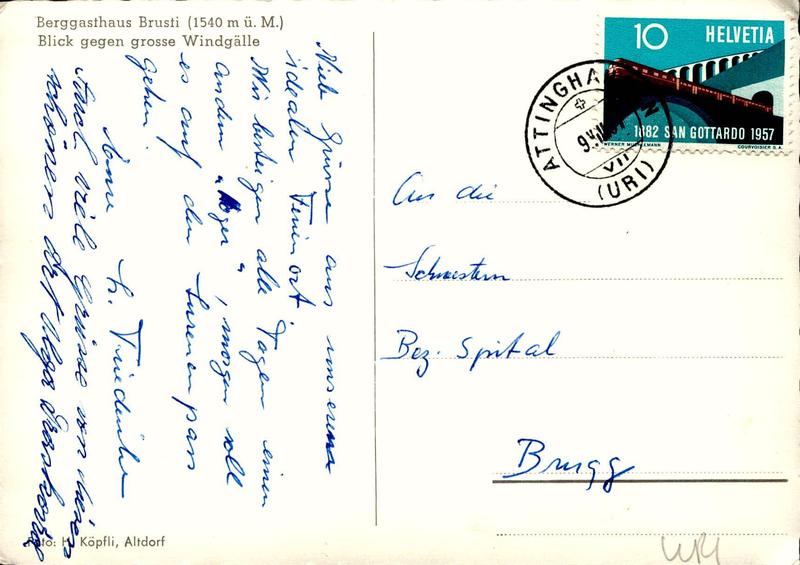 Berggasthaus Brusti (1540 m ü. M.)
Blick gegen grosse Windgälle
Viele Grüsse aus unserem
idealen Ferienort.
Wir besteigen alle Tagen einen
andern "Höger", morgen soll
es auf den Surenenpass
gehen.
Friedli
Auch viele Grüsse von diesem
schönen Ort
Foto: H. Köpfli, Altdorf
10 HELVETIA
1882 SAN GOTTARDO 1957
WERNER MUEHLEMANN
COURVOISIER S.A.
ATTINGHA
VII
(URI)
An die
Schwestern
Bez. Spital
Brugg
URI